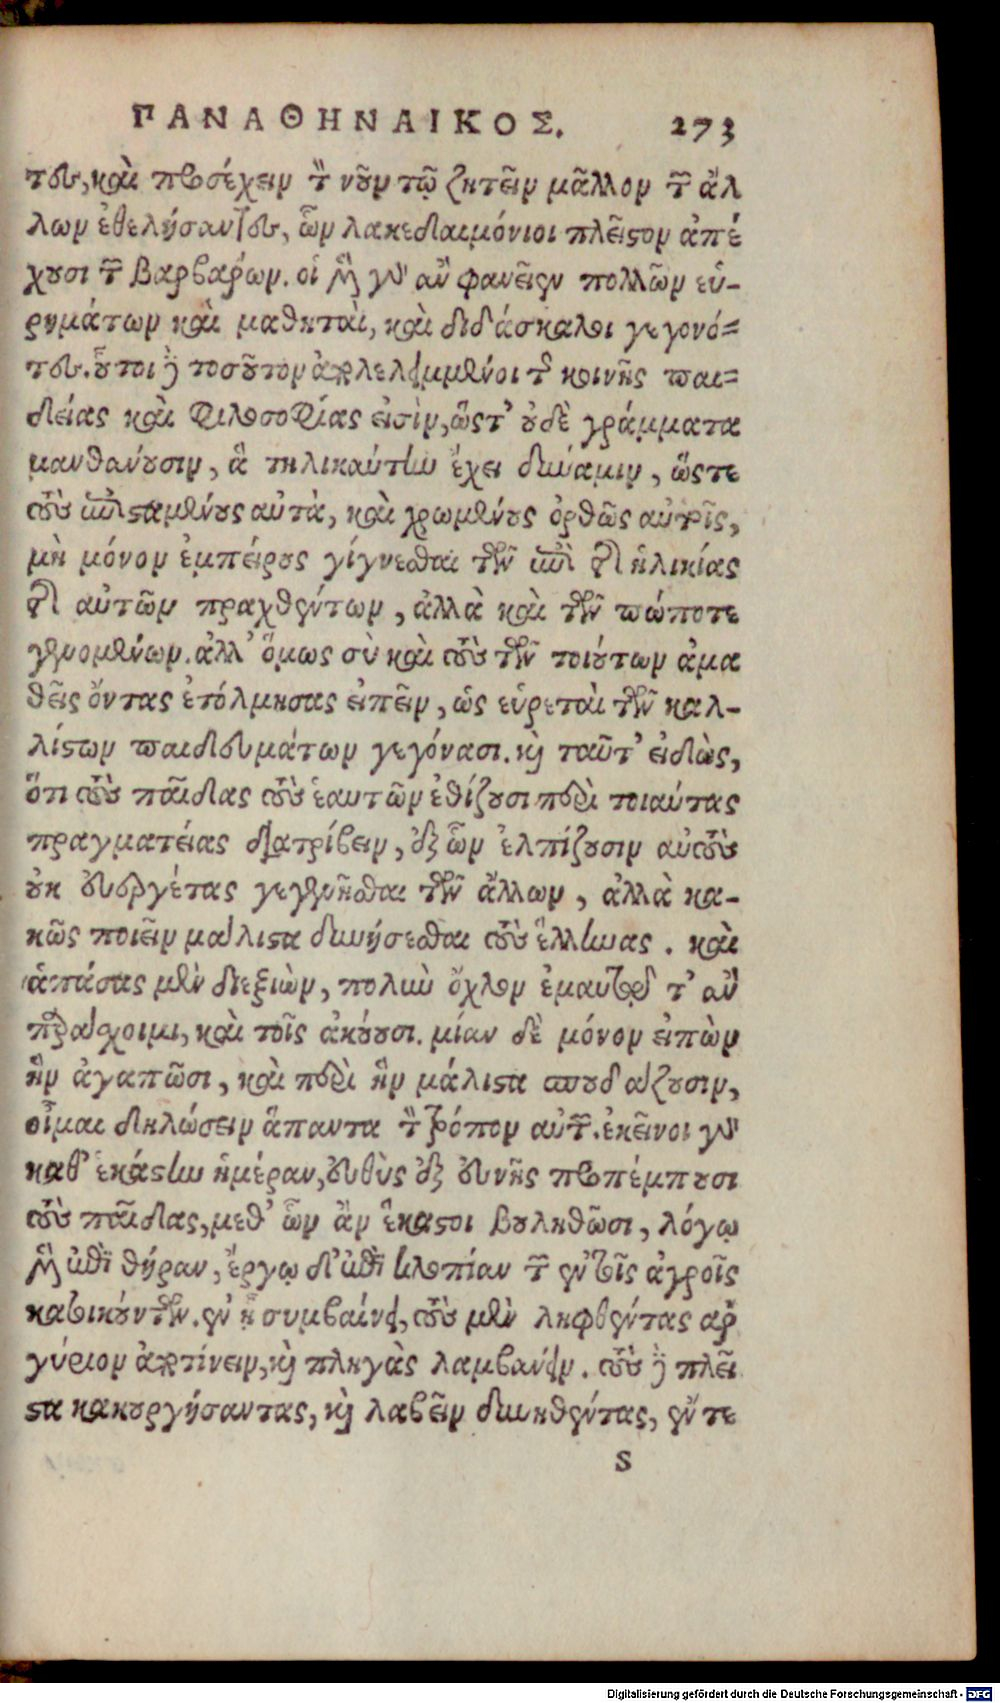 ΠΑΝΑΘΗΝΑΙΚΟΣ. 273
τες, καὶ προσέχειν τὸν νοῦν τῷ ζητεῖν μᾶλλον τῶν ἄλ
λων ἐθελήσαντες, ὧν λακεδαιμόνιοι πλεῖστον ἀπέ
χουσι τῶν βαρβάρων. οἱ μὲν γὰρ ἂν φανεῖεν πολλῶν εὑ-
ρημάτων καὶ μαθηταὶ, καὶ διδάσκαλοι γεγονό=
τες. οὗτοι δὲ τοσοῦτον ἀπολελειμμένοι τῆς κοινῆς παι=
δείας καὶ φιλοσοφίας εἰσὶν, ὥστ' οὐδὲ γράμματα
μανθάνουσιν, ἃ τηλικαύτην ἔχει δύναμιν, ὥστε
τοὺς ἐπισταμένους αὐτὰ, καὶ χρωμένους ὀρθῶς αὐτοῖς,
μὴ μόνον ἐμπείρους γίγνεσθαι τῶν ἐπὶ τῆς ἡλικίας
τῆς αὐτῶν πραχθέντων, ἀλλὰ καὶ τῶν πώποτε
γενομένων. ἀλλ' ὅμως σὺ καὶ τοὺς τῶν τοιούτων ἀμα
θεῖς ὄντας ἐτόλμησας εἰπεῖν, ὡς εὑρεταὶ τῶν καλ-
λίστων παιδευμάτων γεγόνασι. καὶ ταῦτ' εἰδὼς,
ὅτι τοὺς παῖδας τοὺς ἑαυτῶν ἐθίζουσι περὶ τοιαύτας
πραγματείας διατρίβειν, ἐξ ὧν ἐλπίζουσιν αὐτοὺς
οὐκ εὐεργέτας γεγενῆσθαι τῶν ἄλλων, ἀλλὰ κα-
κῶς ποιεῖν μάλιστα δυνήσεσθαι τοὺς ἕλληνας. καὶ
ἁπάσας μὲν διεξιὼν, πολὺν ὄχλον ἐμαυτῷ τ' ἂν
παράσχοιμι, καὶ τοῖς ἀκούουσι. μίαν δὲ μόνον εἰπὼν
ἣν ἀγαπῶσι, καὶ περὶ ἣν μάλιστα σπουδάζουσιν,
οἶμαι δηλώσειν ἅπαντα τὸν τρόπον αὐτῶν. ἐκεῖνοι γὰρ
καθ' ἑκάστην ἡμέραν, εὐθὺς ἐξ εὐνῆς προπέμπουσι
τοὺς παῖδας, μεθ' ὧν ἂν ἕκαστοι βουληθῶσι, λόγῳ
μὲν ἐπὶ θήραν, ἔργῳ δ' ἐπὶ κλοπίαν τῶν ἐν τοῖς ἀγροῖς
κατοικούντων. ἐν ᾗ συμβαίνει, τοὺς μὲν ληφθέντας ἀρ
γύριον ἀποτίνειν, καὶ πληγὰς λαμβάνειν. τοὺς δὲ πλεῖ
στα κακουργήσαντας, καὶ λαθεῖν δυνηθέντας, ἔν τε
S
Digitalisierung gefördert durch die Deutsche Forschungsgemeinschaft - DFG